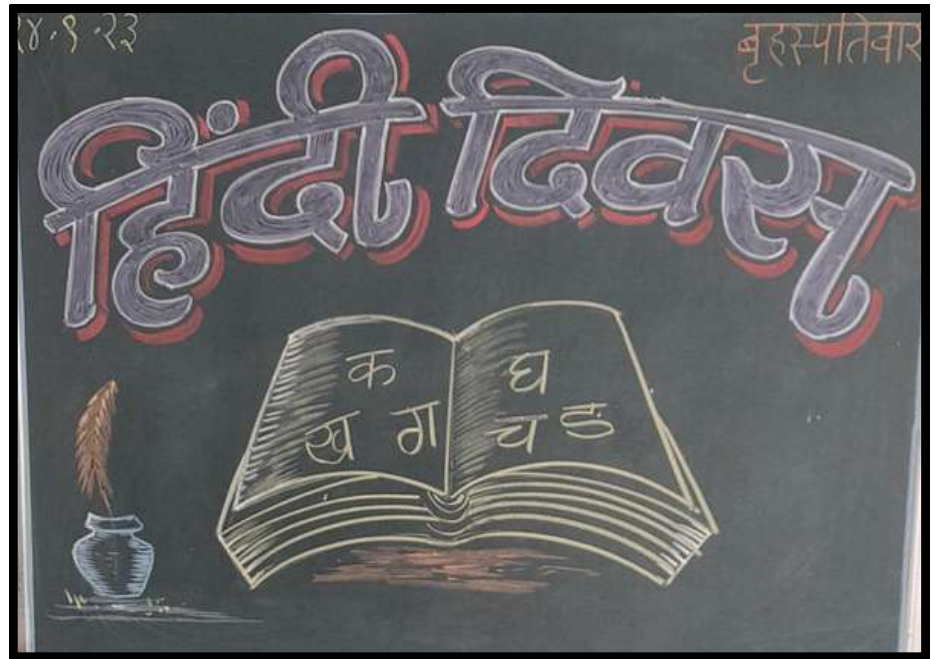 १४.९.२३
बृहस्पतिवार
हिंदी दिवस
क घ
ख ग च ङ